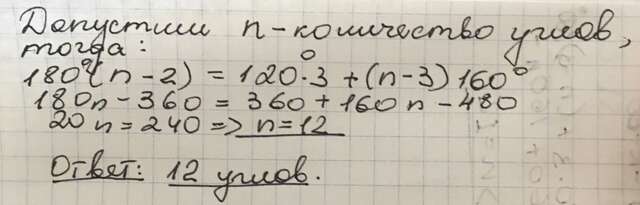 Допустим n-количество углов,
тогда:
180°(n-2) = 120°·3 + (n-3)160°
180n-360 = 360+160n-480
20n=240=> n=12
Ответ: 12 углов.